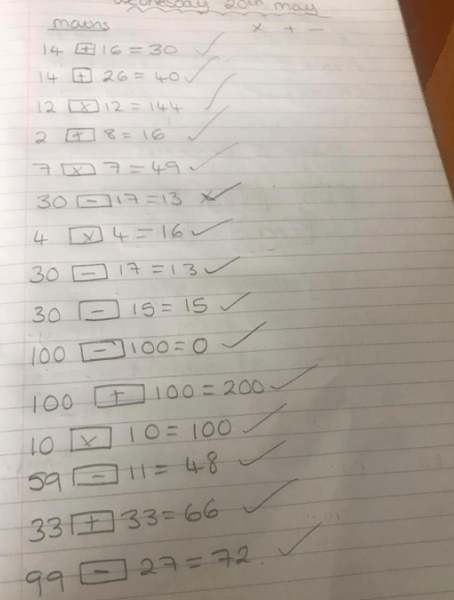 Wednesday 20th may
maths x + -
14 + 16 = 30 ✓
14 + 26 = 40 ✓
12 x 12 = 144 ✓
2 + 8 = 16 ✓
7 x 7 = 49 ✓
30 - 17 = 13 ✓
4 x 4 = 16 ✓
30 - 17 = 13 ✓
30 - 15 = 15 ✓
100 - 100 = 0 ✓
100 + 100 = 200 ✓
10 x 10 = 100 ✓
59 - 11 = 48 ✓
33 + 33 = 66 ✓
99 - 27 = 72. ✓